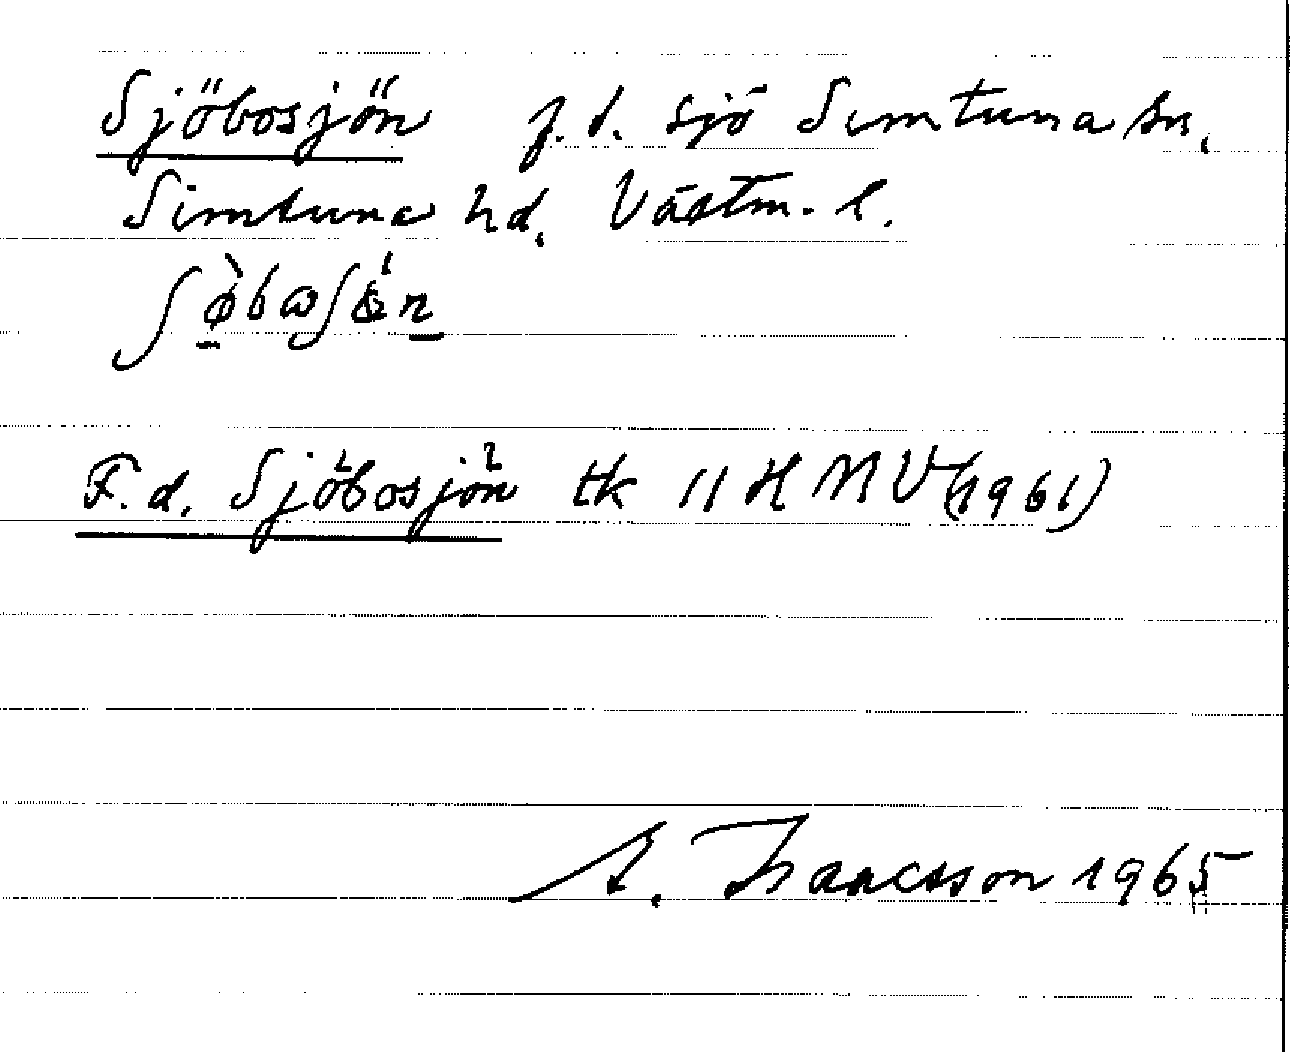 Sjöbosjön f.d. sjö Simtuna sn.
Simtuna hd. Västm. l.
F.d. Sjöbosjön tk 11 H NV (1961)
A. Isaacsson 1965